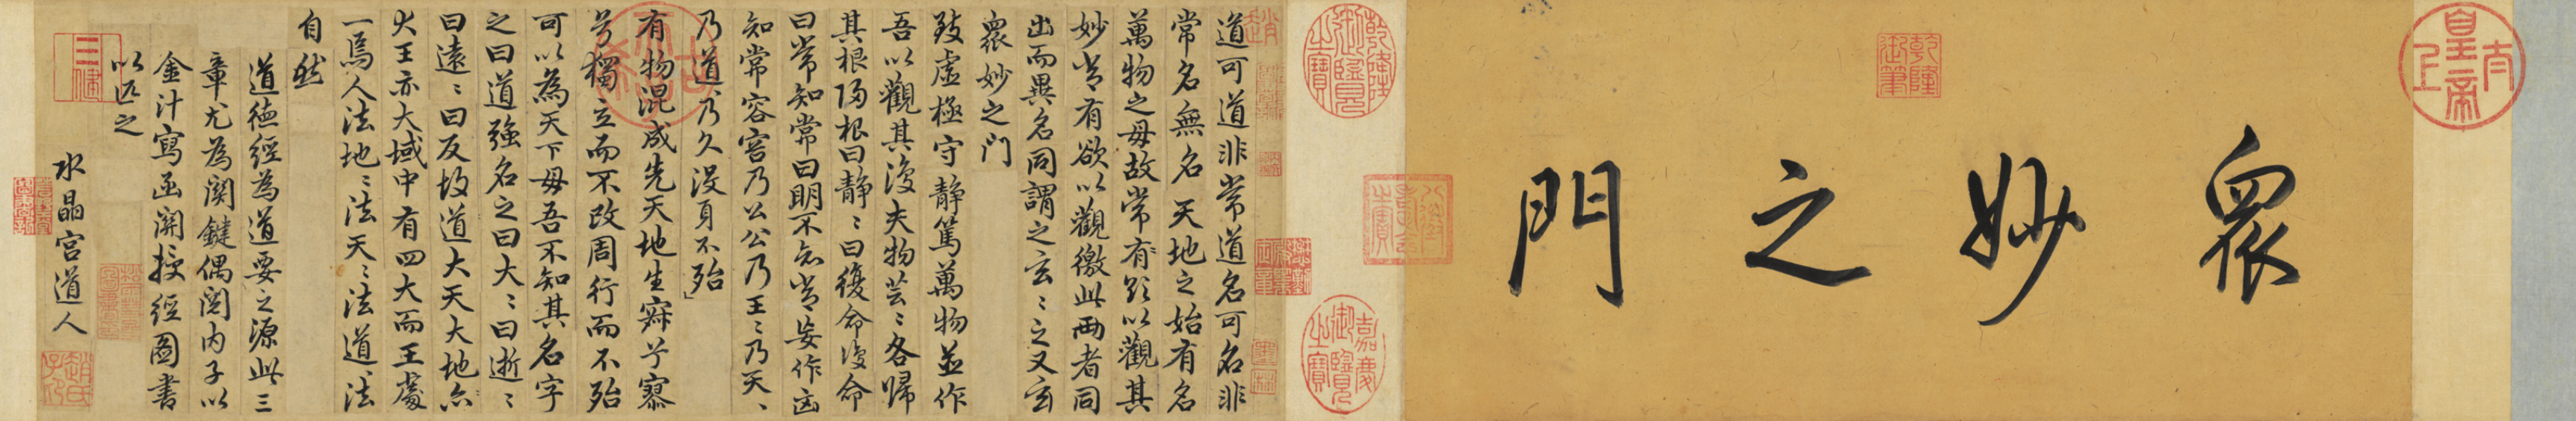 太上皇帝
眾妙之門
乾隆御筆
八徵耄念之寶
乾隆御覽之寶
嘉慶御覽之寶
道可道非常道名可名非
常名無名天地之始有名
萬物之母故常有欲以觀其
妙常有欲以觀徼此兩者同
出而異名同謂之玄〻之又玄
眾妙之門
致虛極守靜篤萬物並作
吾以觀其復夫物芸〻各歸
其根歸根曰靜〻曰復命復命
曰常知常曰明不知常妄作凶
知常容容乃公公乃王〻乃天〻
乃道〻乃久沒身不殆
有物混成先天地生寂兮寥
兮獨立而不改周行而不殆
可以為天下母吾不知其名字
之曰道強名之曰大〻曰逝〻
曰遠〻曰反故道大天大地亦
大王亦大域中有四大而王處
一焉人法地〻法天〻法道〻法
自然
道德經為道要之源此三
章尤為關鍵偶閱內子以
金汁寫函關授經圖書
以匹之
水晶宮道人
趙氏子昂